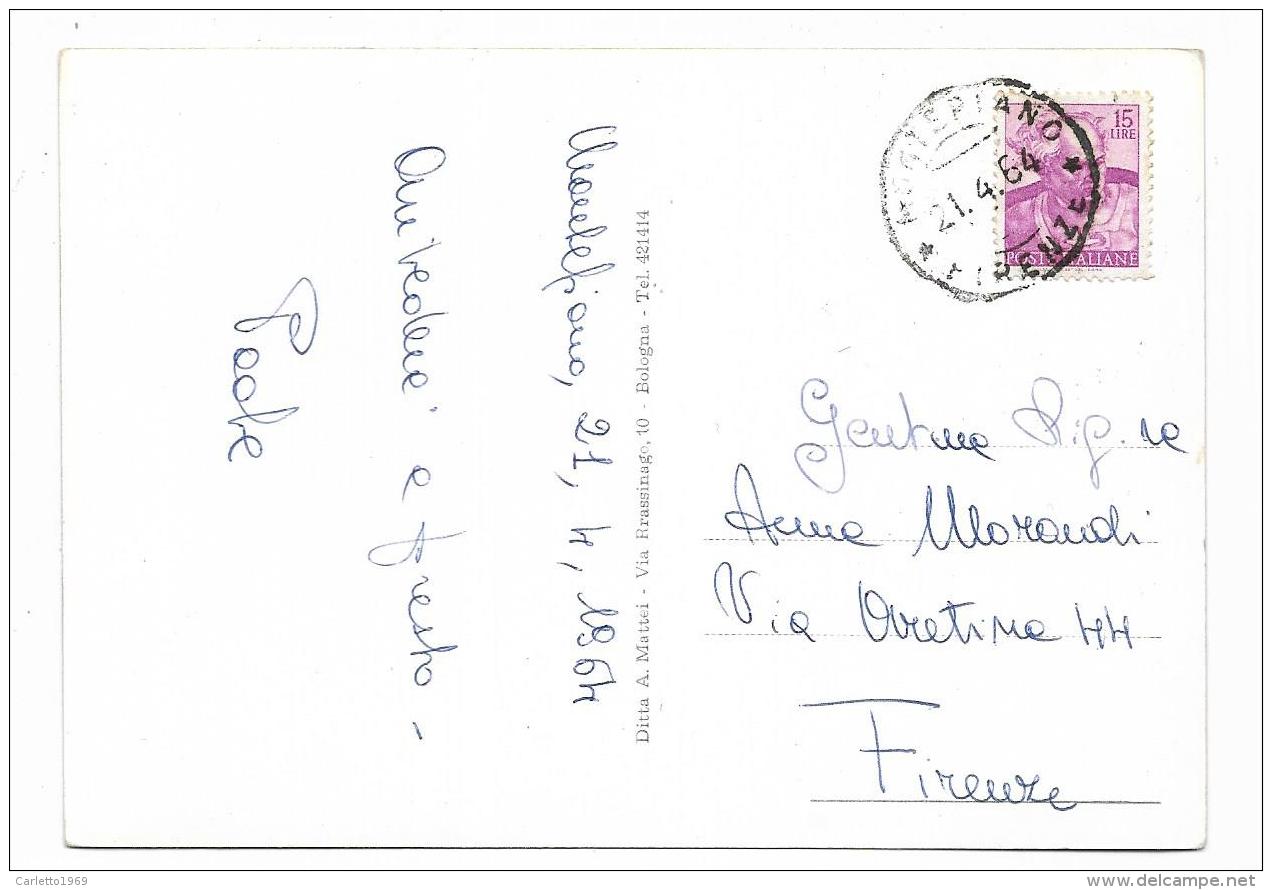 Montepiano, 21, 4, 1964
Arrivederci a presto -
Paola
Ditta A. Mattei - Via Rrassinago, 10 - Bologna - Tel. 421414
MONTEPIANO
21.4.64
* FIRENZE *
15
LIRE
POSTE ITALIANE
Gentma Sig.na
Anna Morandi
Via Aretina 44
Firenze
Carletto1969
delcampe.net